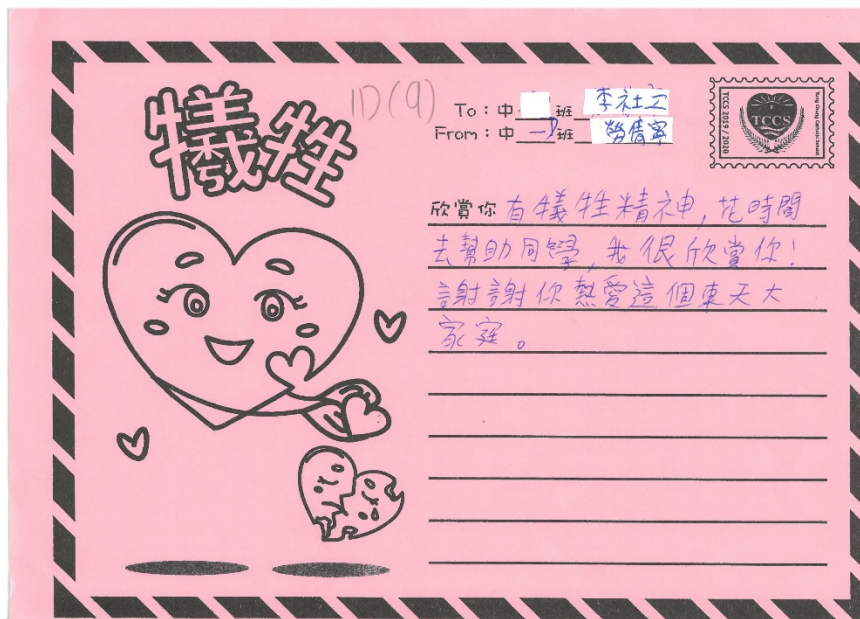 犧牲
1D(9)
To：中 班 李社工
From：中 一D 班 勞倩寧
TCCS 2019 / 2020
TCCS
Tung Chung Catholic School
欣賞你有犧牲精神，花時間
去幫助同學，我很欣賞你！
謝謝你熱愛這個東天大
家庭。